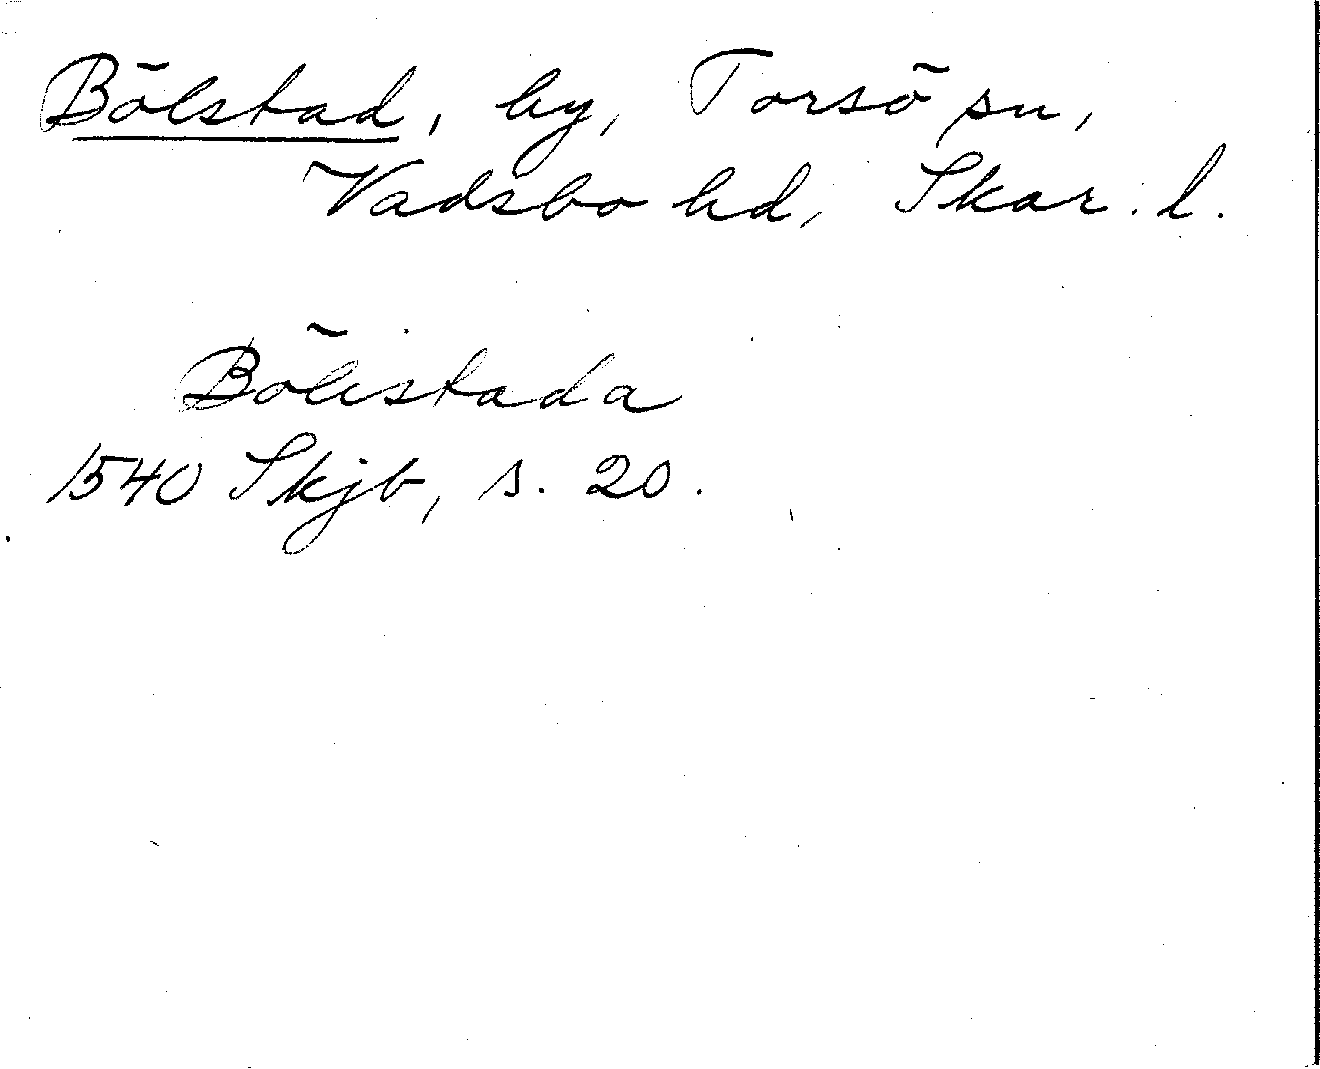 Bölstad, by, Torsö sn,
Vadsbo hd, Skar. l.
Bölistada
1540 Skjb, s. 20.